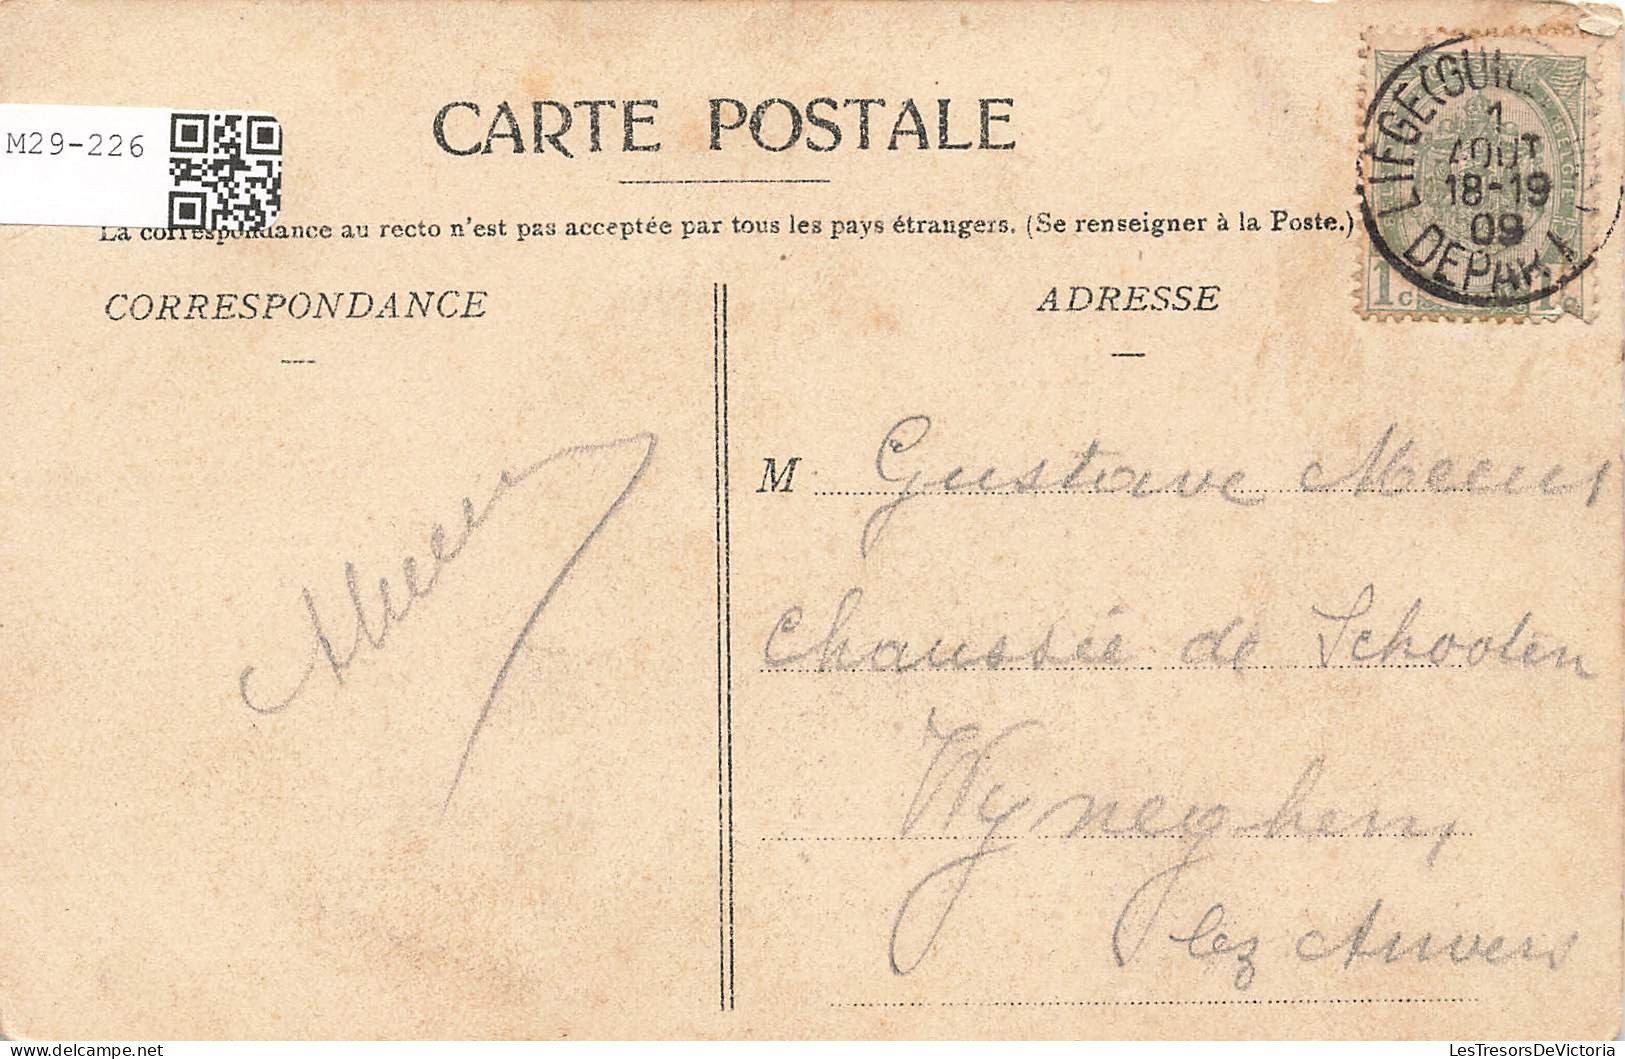 M29-226
CARTE POSTALE
La correspondance au recto n'est pas acceptée par tous les pays étrangers. (Se renseigner à la Poste.)
LIEGE (GUIL
1
AOUT
18-19
09
DEPART
1c 1c
CORRESPONDANCE
ADRESSE
M Gustave Meeus
Chaussée de Schooten
Wyneghem
lez Anvers
LesTresorsDeVictoria